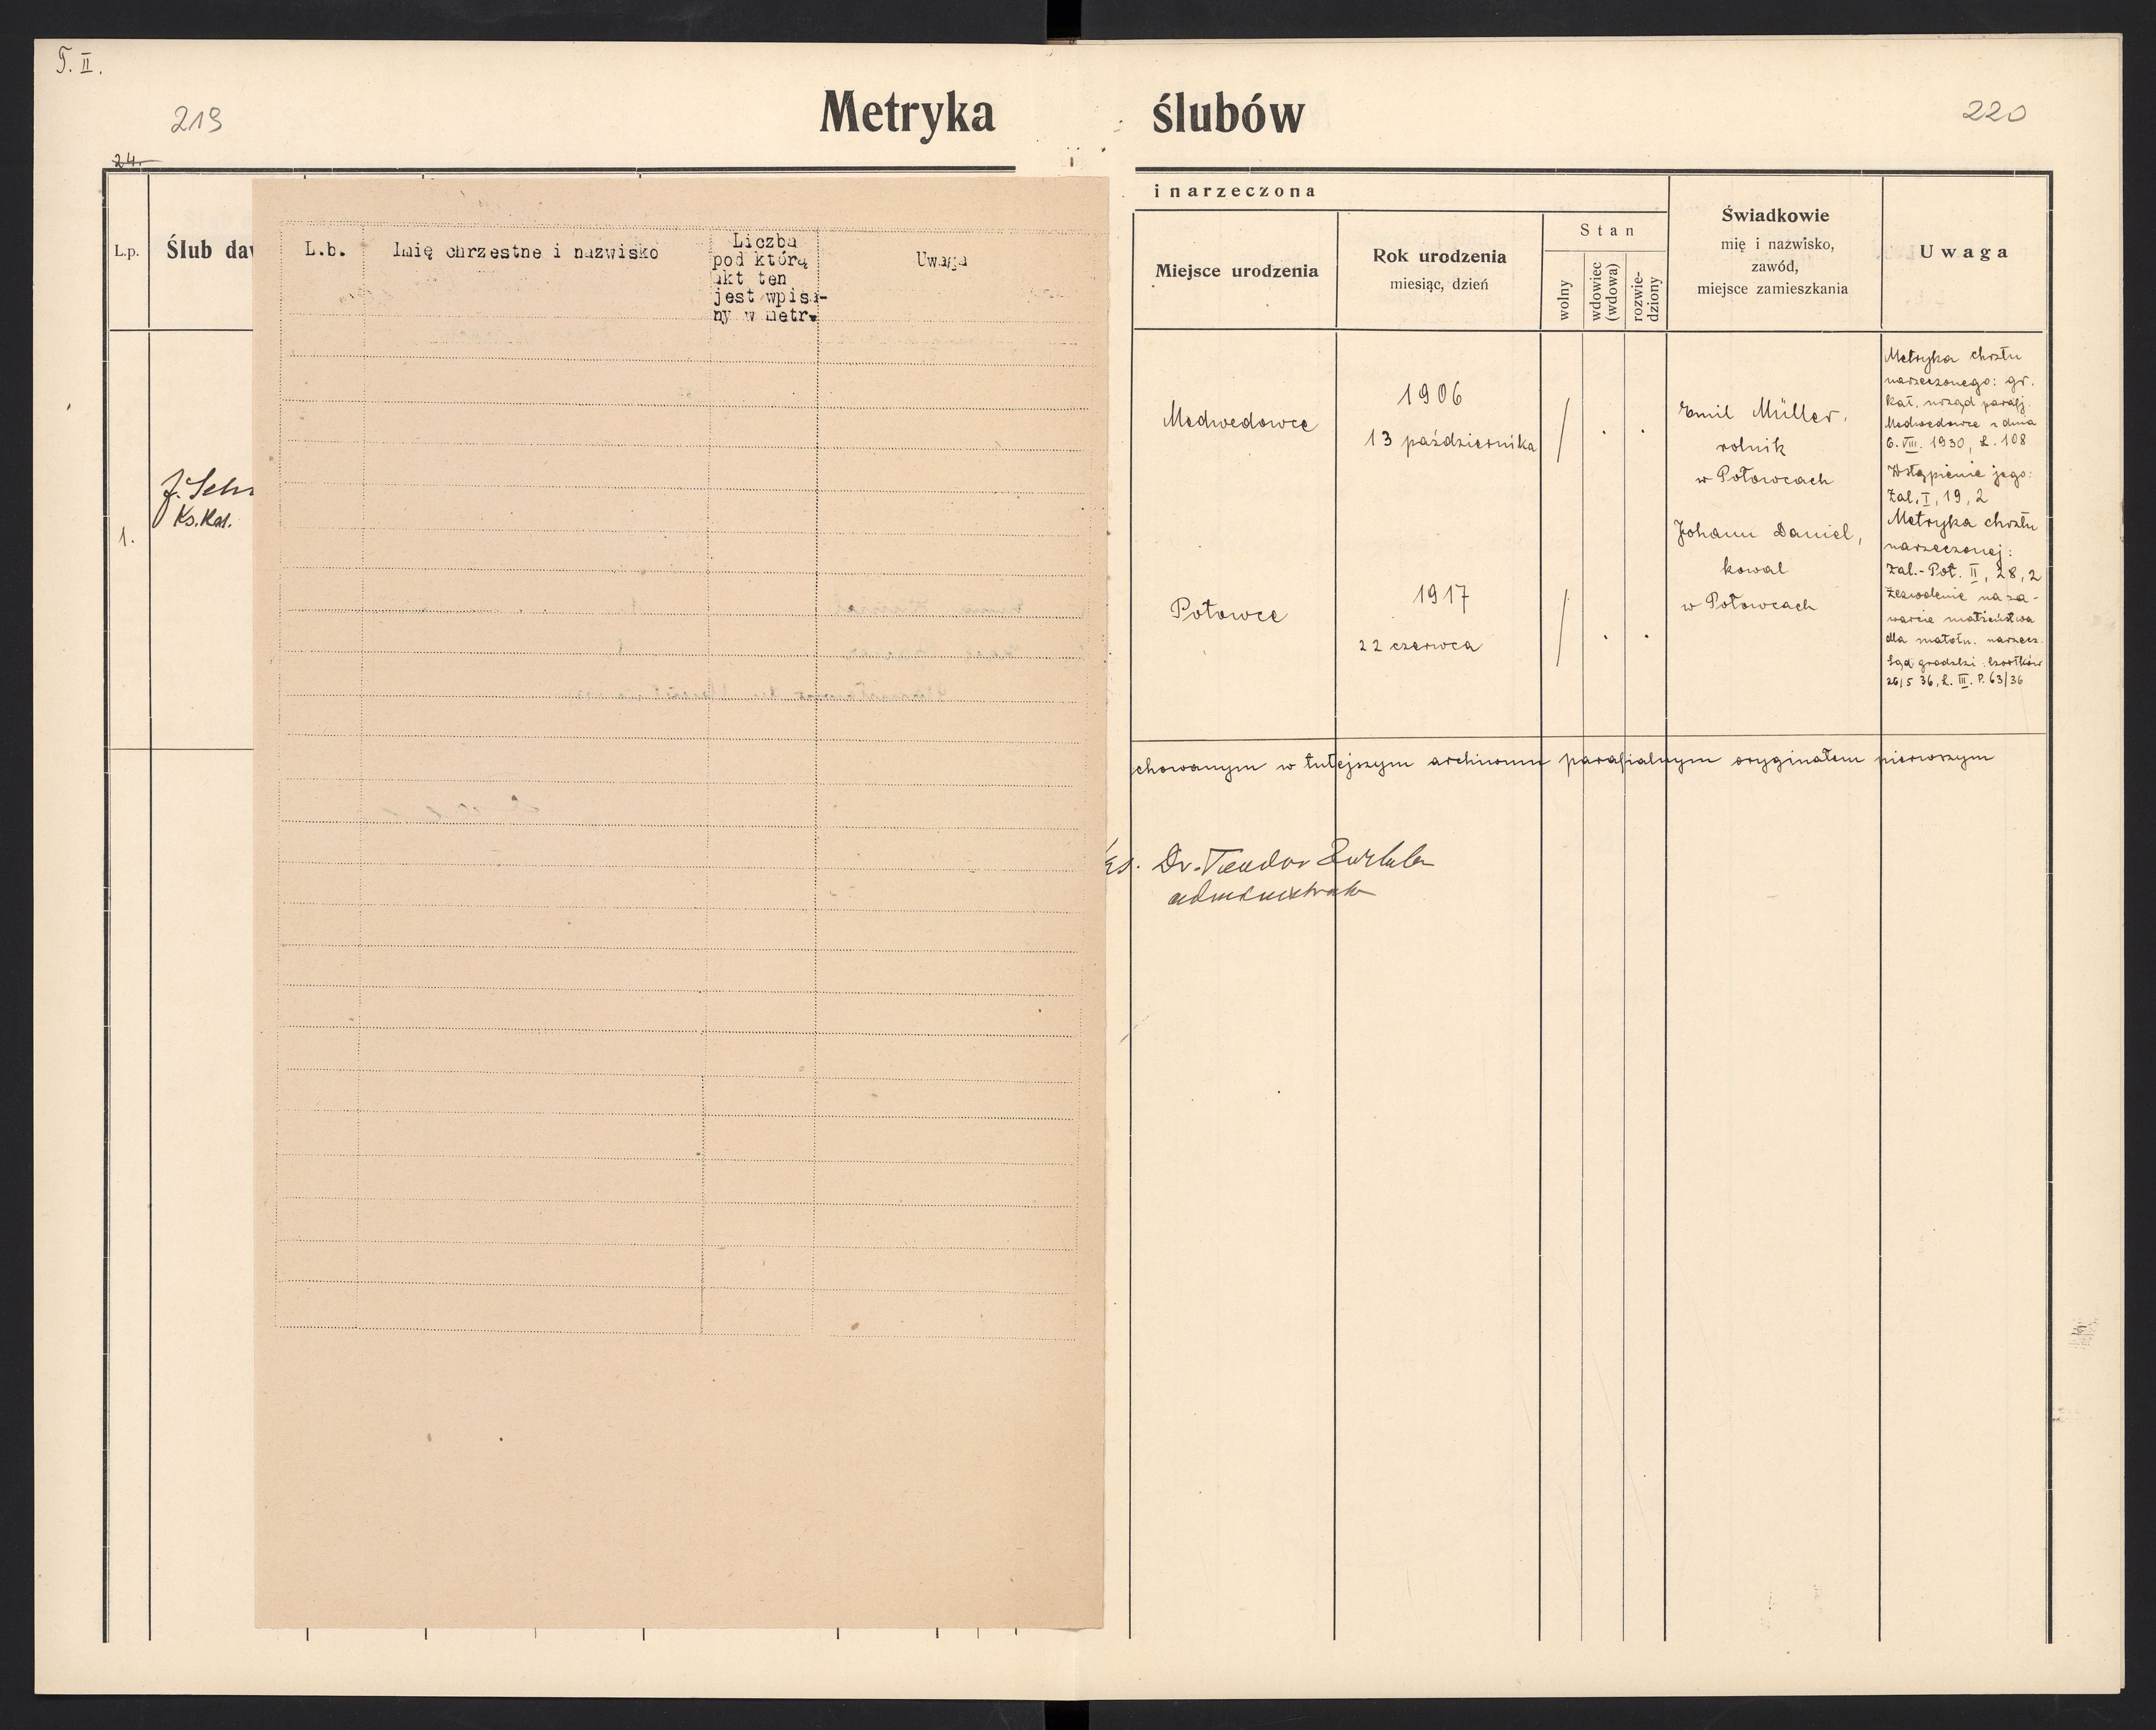 T. II.
219
Metryka ślubów
220
24.
L.p.
Ślub daw
J. Sch
Ks. Kat.
1.
L.b.
Imię chrzestne i nazwisko
Liczba
pod którą
akt ten
jest wpisa-
ny w metr.
Uwaga
i narzeczona
Miejsce urodzenia
Rok urodzenia
miesiąc, dzień
Stan
wolny
wdowiec
(wdowa)
rozwie-
dziony
Świadkowie
mię i nazwisko,
zawód,
miejsce zamieszkania
Uwaga
Medwedowce
1906
13 października
Emil Müller,
rolnik
w Połowcach
Połowce
1917
22 czerwca
Johann Daniel,
kowal
w Połowcach
Metryka chrztu
narzeczonego: gr.
kat. urząd parafj.
Medwedowce z dnia
6. VIII. 1930, L. 108
Wstąpienie jego:
Zal. I, 19, 2
Metryka chrztu
narzeczonej:
Zal.-Poł. II, 28, 2
Zezwolenie na za-
warcie małżeństwa
dla małoln. narzecz.
Sąd grodzki Czortków
26/5 36, L. III. P. 63/36
chowanym w tutejszym archiwum parafialnym oryginałem pierwszym
Ks. Dr. Teodor
administrator